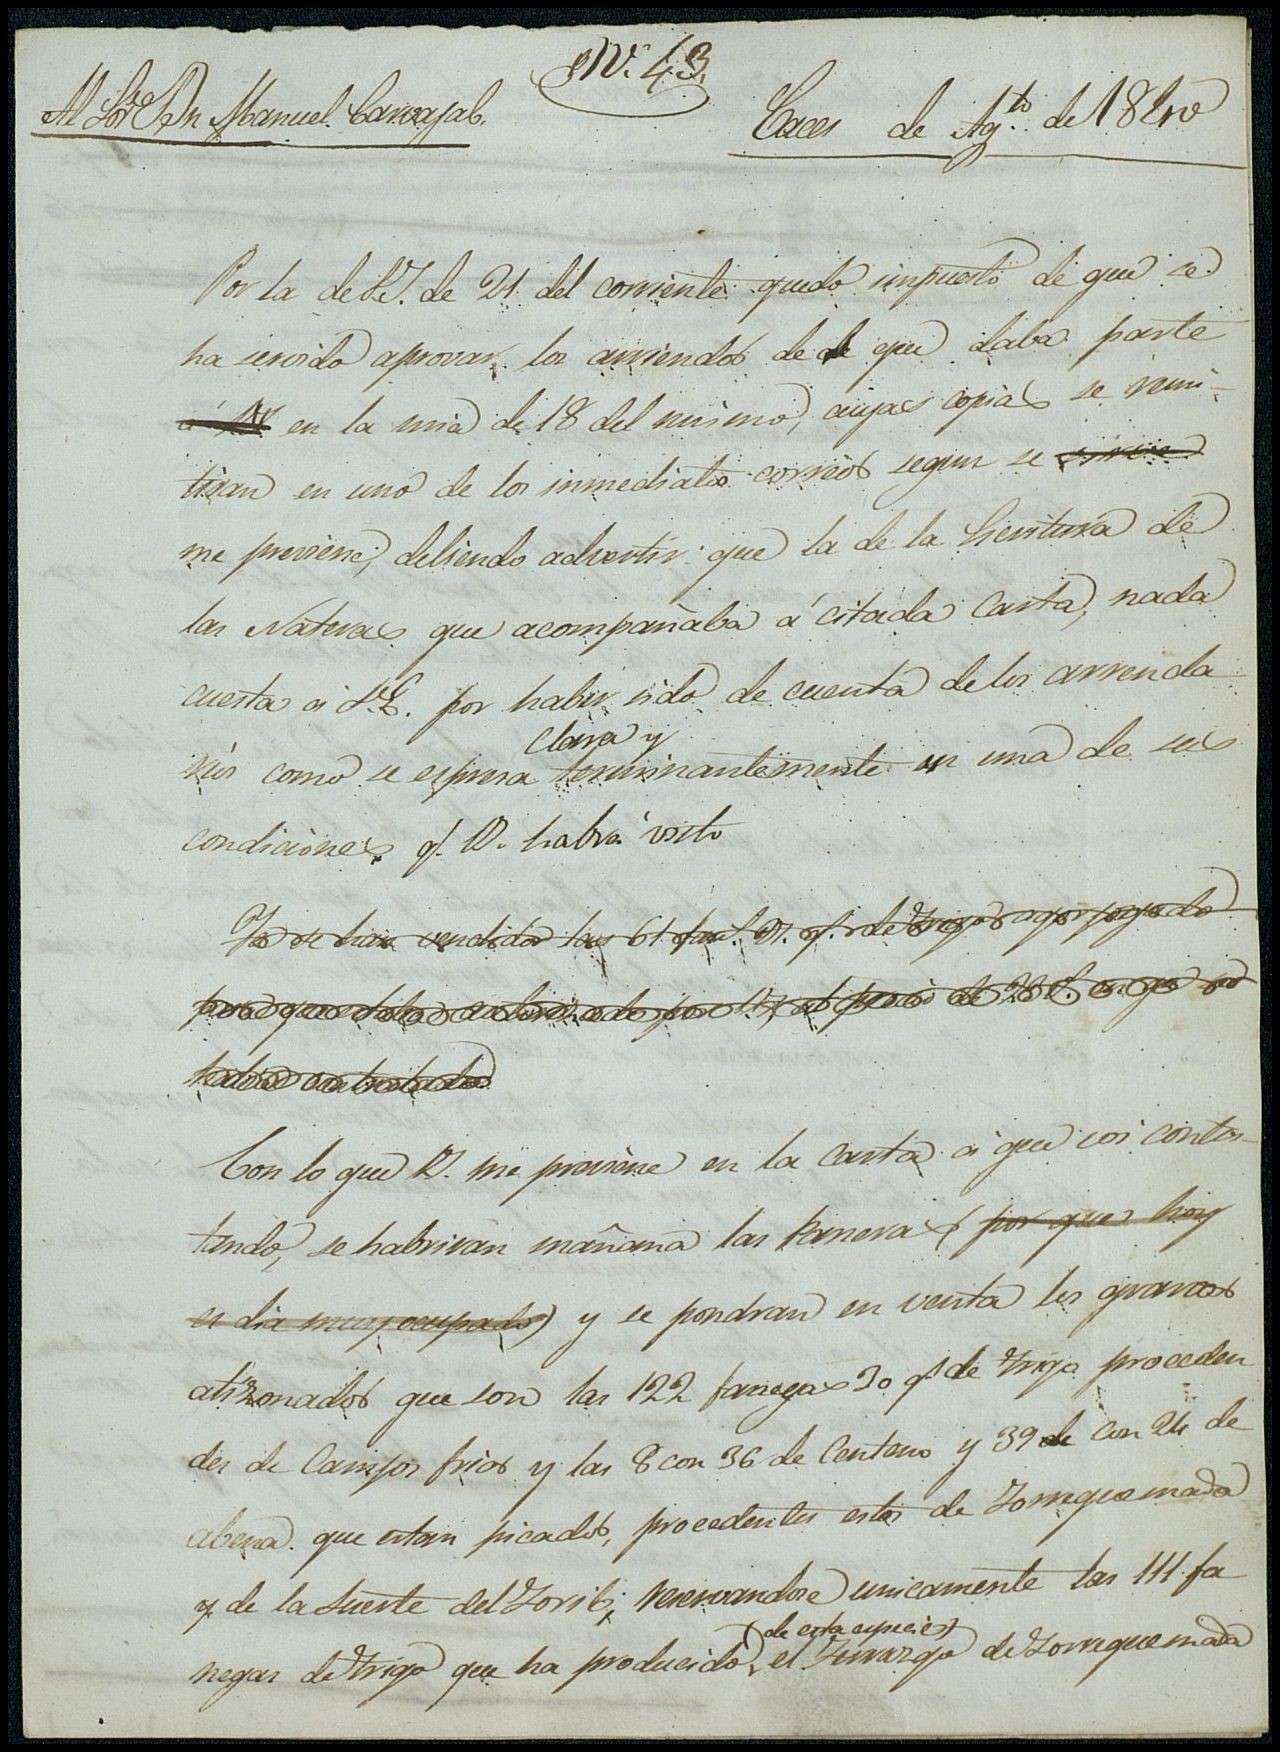 Nº. 43.
Al Sor. Dn Manuel Carvajal.
Cáces de Agto. de 18
Por la de V. de 21 del corriente quedo impuesto de que se
ha servido aprovar los arriendos de que daba parte
en la mia de 18 del mismo, cuyas copias se remi-
tiran en uno de los inmediatos correos segun se sirve
me previene, debiendo advertir que la de la Escritura de
las Nateras que acompañaba á citada Carta, nada
cuesta á S.E. por haber sido de cuenta de los arrenda
rios como se espresa terminantemente en una de sus
clara y
condiciones q. V. habrá visto
Ya se han vendido las 61 fans. 21 q.s de trigo
al precio de 28
Con lo que V. me previene en la carta á que voi contes-
tando, se habriran mañana las Paneras (por que hoy
es dia muy ocupado) y se pondran en venta los granos
atizonados que son las 122 fanegas 30 qs. de trigo proceden
des de Campos frios y las 8 con 36 de Centeno y 39 de con 24 de
abena que estan picados, procedentes estos de Torrequemada
y de la Suerte del Toril, reservandose unicamente las 111 fa
negas de trigo que ha producido el Terrazgo de Torrequemada
(de esta especie)